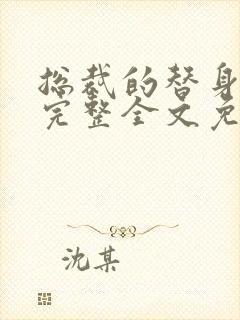 总裁的替身
完整全文免
沈某